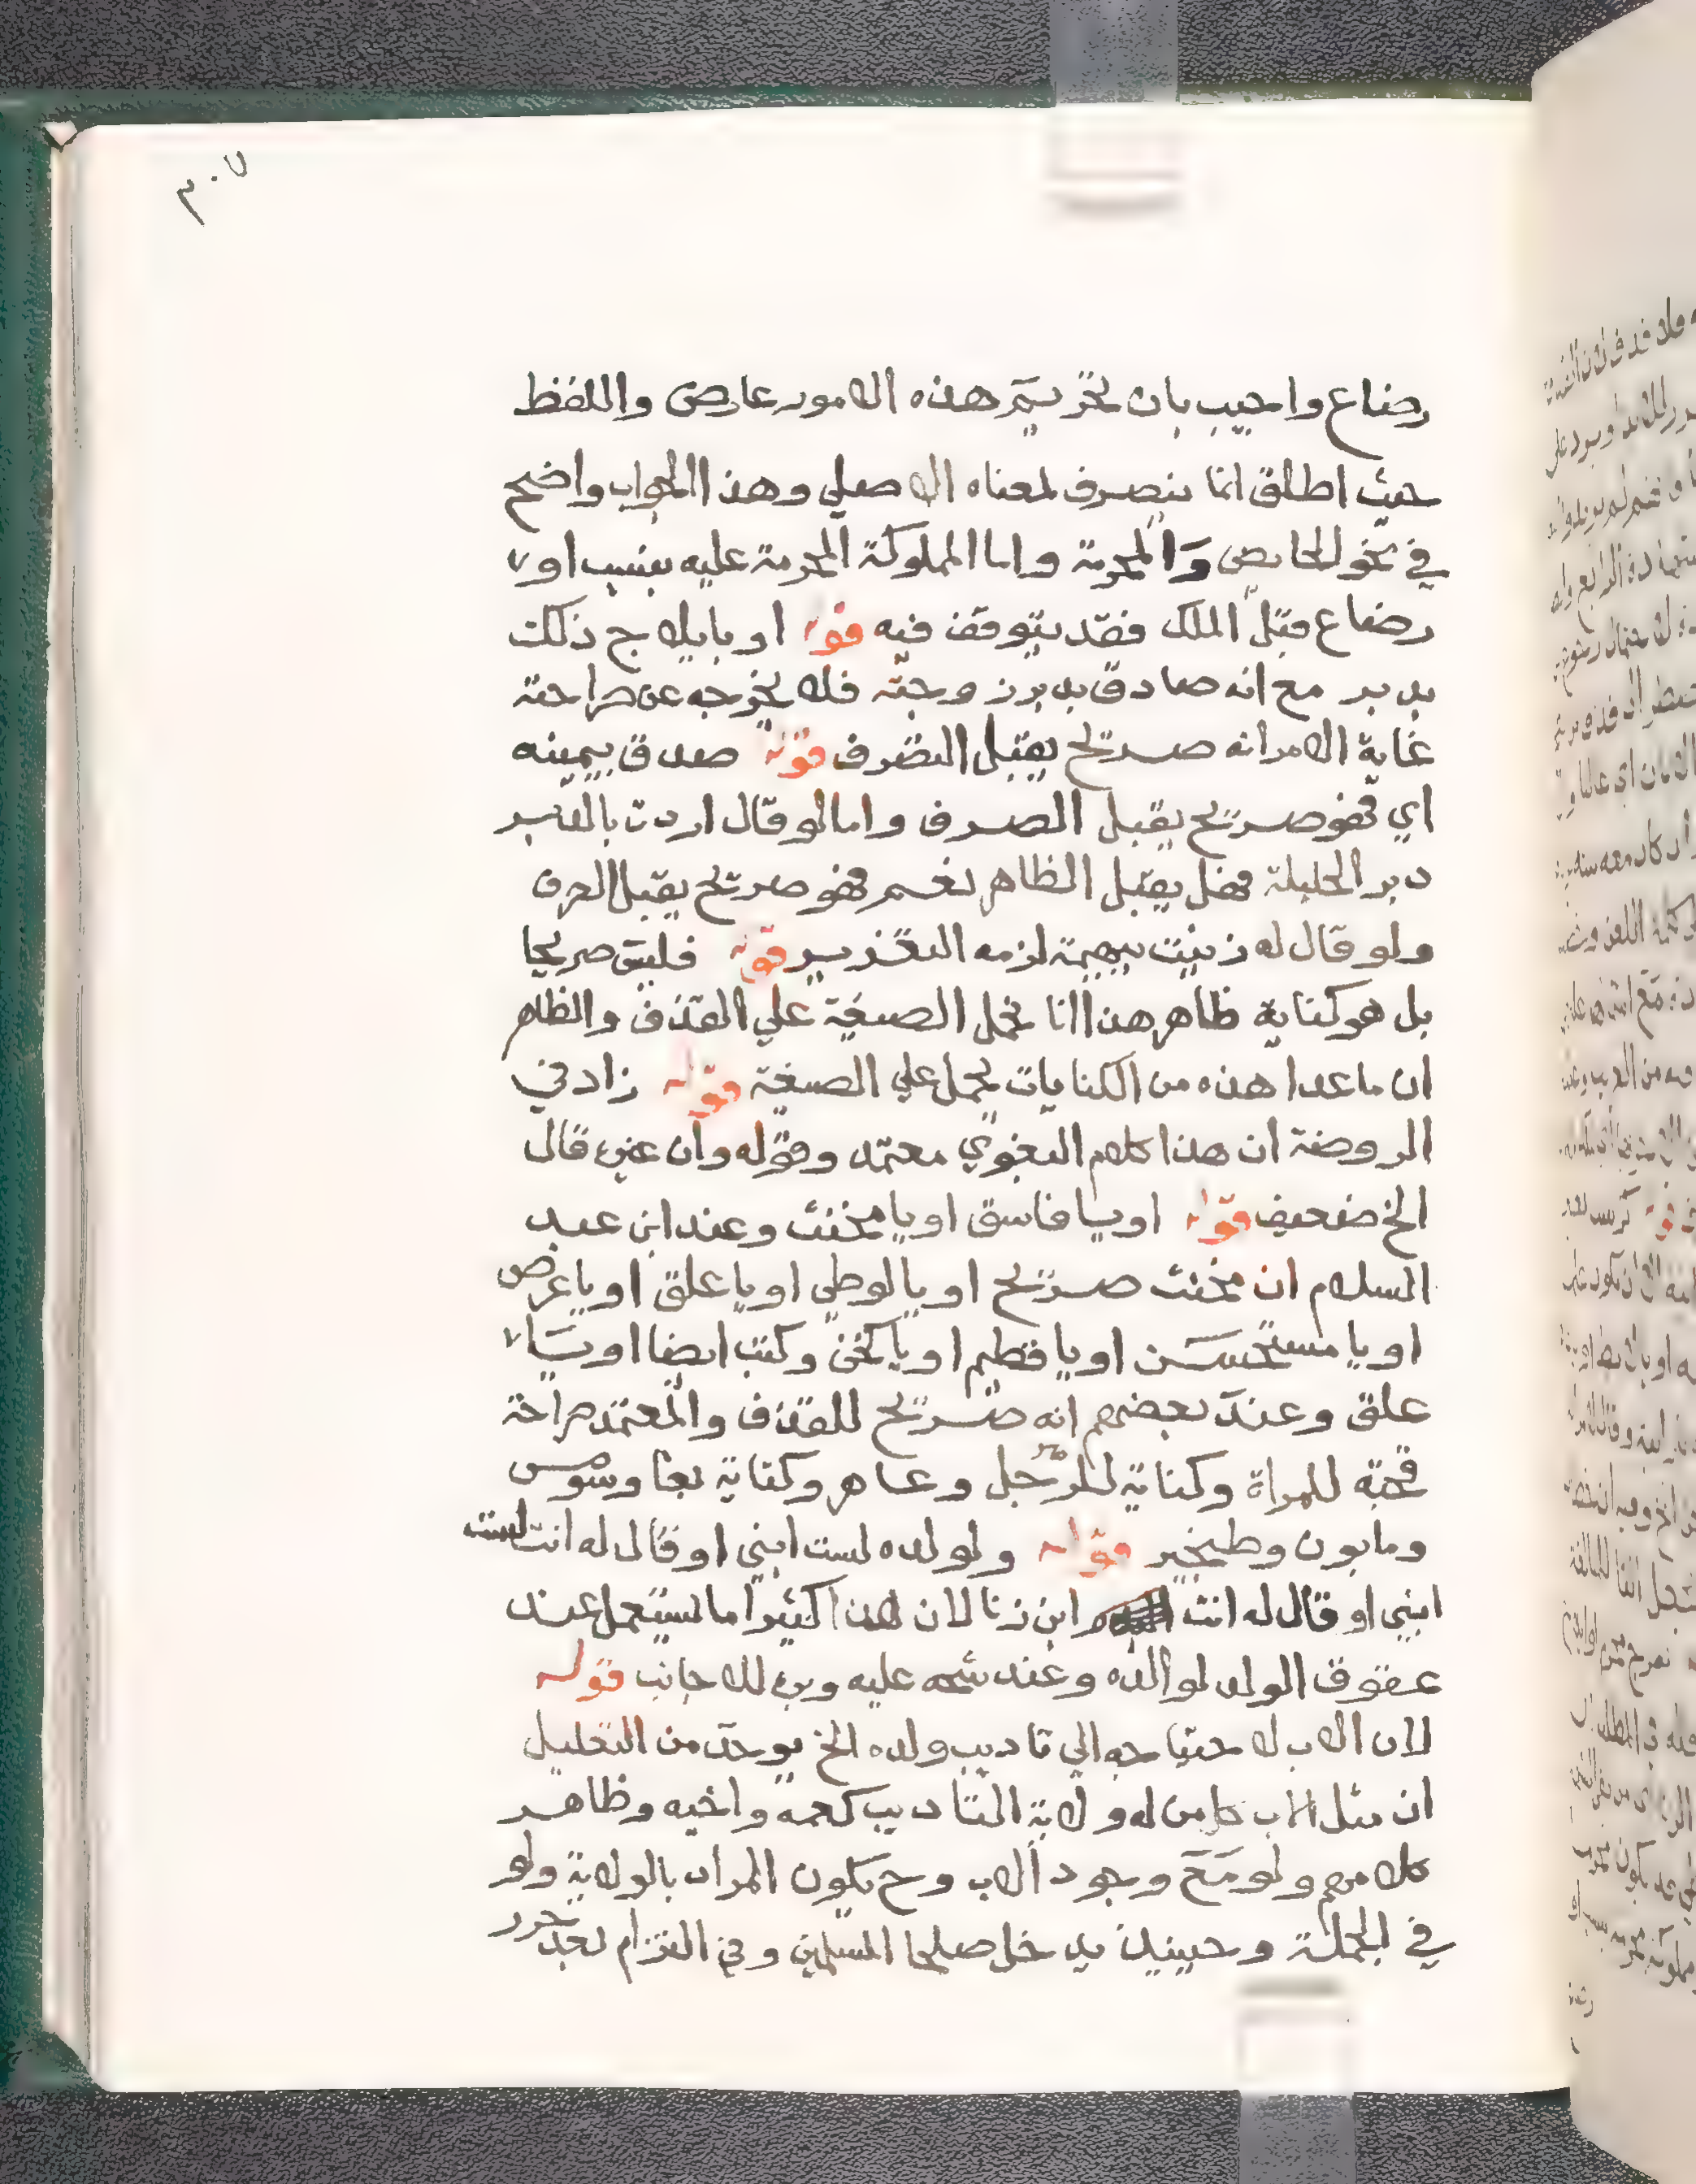 ٣٠٧
رضاع واجيب بان تحريم هذه الامور عارض واللفظ
حيث اطلق انما ينصرف لمعناه الاصلي وهذا الجواب واضح
في نحو الحايض والمحرمة واما المملوكة المحرمة عليه بنسب او
رضاع قبل الملك فقد يتوقف فيه قوله او بايلاج ذلك
بدبر مع انه صادق بدبر زوجته فلا يخرجه عن صراحته
غاية الامر انه صريح يقبل الصرف قوله صدق بيمينه
اي فهو صريح يقبل الصرف واما لو قال اردت بالدبر
دبر الحليلة فهل يقبل الظاهر نعم فهو صريح يقبل الصرف
ولو قال له زنيت ببهيمة لزمه التعزير قوله فليس صريحا
بل هو كناية ظاهر هذا انا نحمل الصيغة علي القذف والظاهر
ان ما عدا هذه من الكنايات يحمل علي الصيغة قوله زاد في
الروضة ان هذا كلام البغوي معتمد وقوله وان غيره قال
الخ ضعيف قوله او يا فاسق او يا مخنث وعند ابن عبد
السلام ان مخنث صريح او يا لوطي او يا علق او يا عرص
او يا مستحسن او يا فطيم او يا كخن وكتب ايضا او يا
علق وعند بعضهم انه صريح للقذف والمعتمد صراحة
قحبة للمراة وكناية للرجل وعاهر وكناية بغا وسوس
ومابون وطنجير قوله ولو لولده لست ابني او قال له انت لست
ابني او قال له انت ابن زنا لان هذا كثيرا ما يستعمل عند
عقوق الولد لوالده وعند شحه عليه وبذلك جانب قوله
لان الاب لاحتياجه الي تاديب ولده الخ يوخذ من التعليل
ان مثل الاب كل من له ولاية التاديب كعمه واخيه وظاهر
كلامهم ولو مع وجود الاب وح يكون المراد بالولاية ولو
في الجملة وحينيذ يدخل صلحا المسلمين وفي التزام بعد حرر